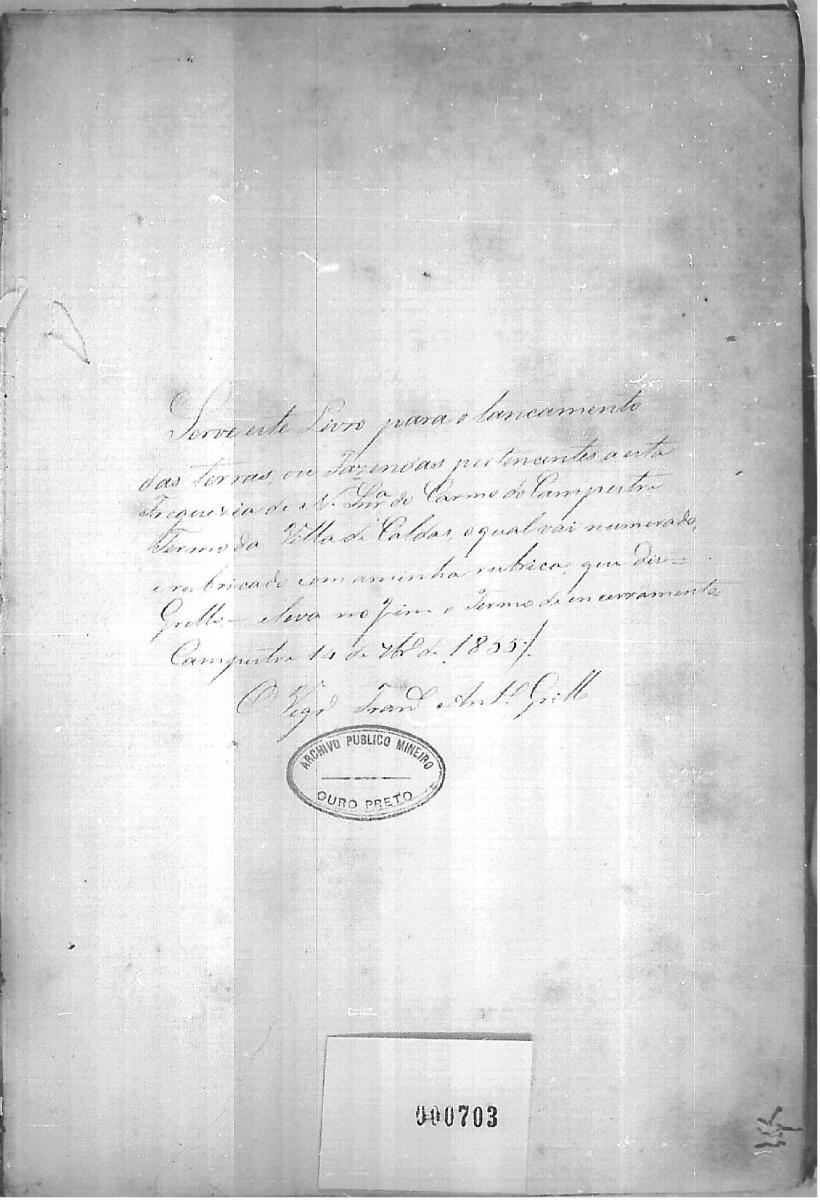 Serve este Livro para o lancamento
das terras, ou Fazendas pertencentes a esta
Freguezia de N. Snrª do Carmo do Campestre
Termo da Villa de Caldas, o qual vai numerado,
e rubricado com a minha rubrica, que diz =
Grillo = e leva no fim o Termo de encerramento
Campestre 14 de 7br.º de 1855 /.
O Vigrº Franº Antº Grillo
ARCHIVO PUBLICO MINEIRO
OURO PRETO
000703